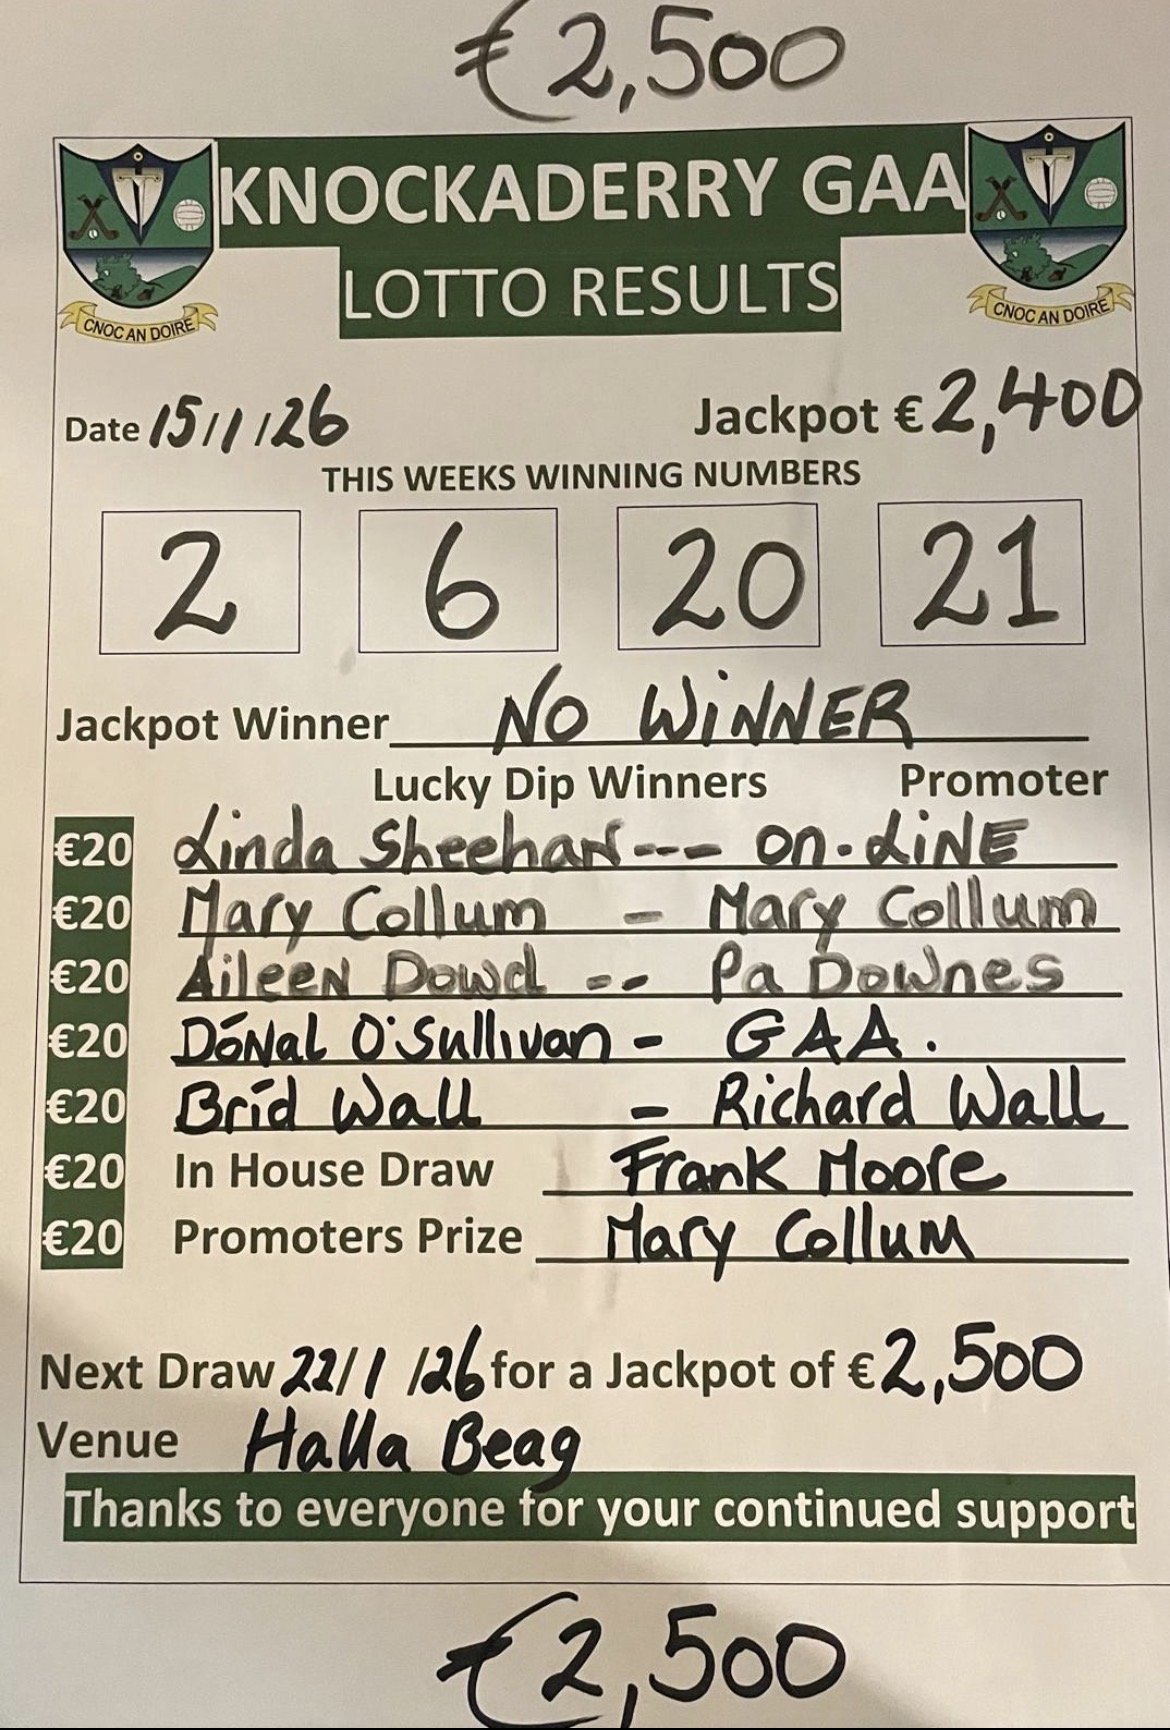 €2,500
KNOCKADERRY GAA
LOTTO RESULTS
CNOC AN DOIRE
CNOC AN DOIRE
Date 15/1/26 Jackpot €2,400
THIS WEEKS WINNING NUMBERS
2 6 20 21
Jackpot Winner NO WiNNER
Lucky Dip Winners Promoter
€20 Linda Sheehan --- on-LiNE
€20 Mary Collum - Mary Collum
€20 AileeN Dowd -- Pa DowNes
€20 DóNal O'Sullivan - GAA.
€20 Bríd Wall = Richard Wall
€20 In House Draw Frank Moore
€20 Promoters Prize Mary Collum
Next Draw 22/1/26 for a Jackpot of €2,500
Venue Halla Beag
Thanks to everyone for your continued support
€2,500